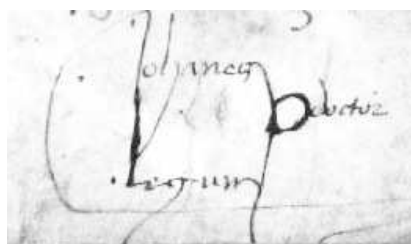 Johannes
doctor
Legum